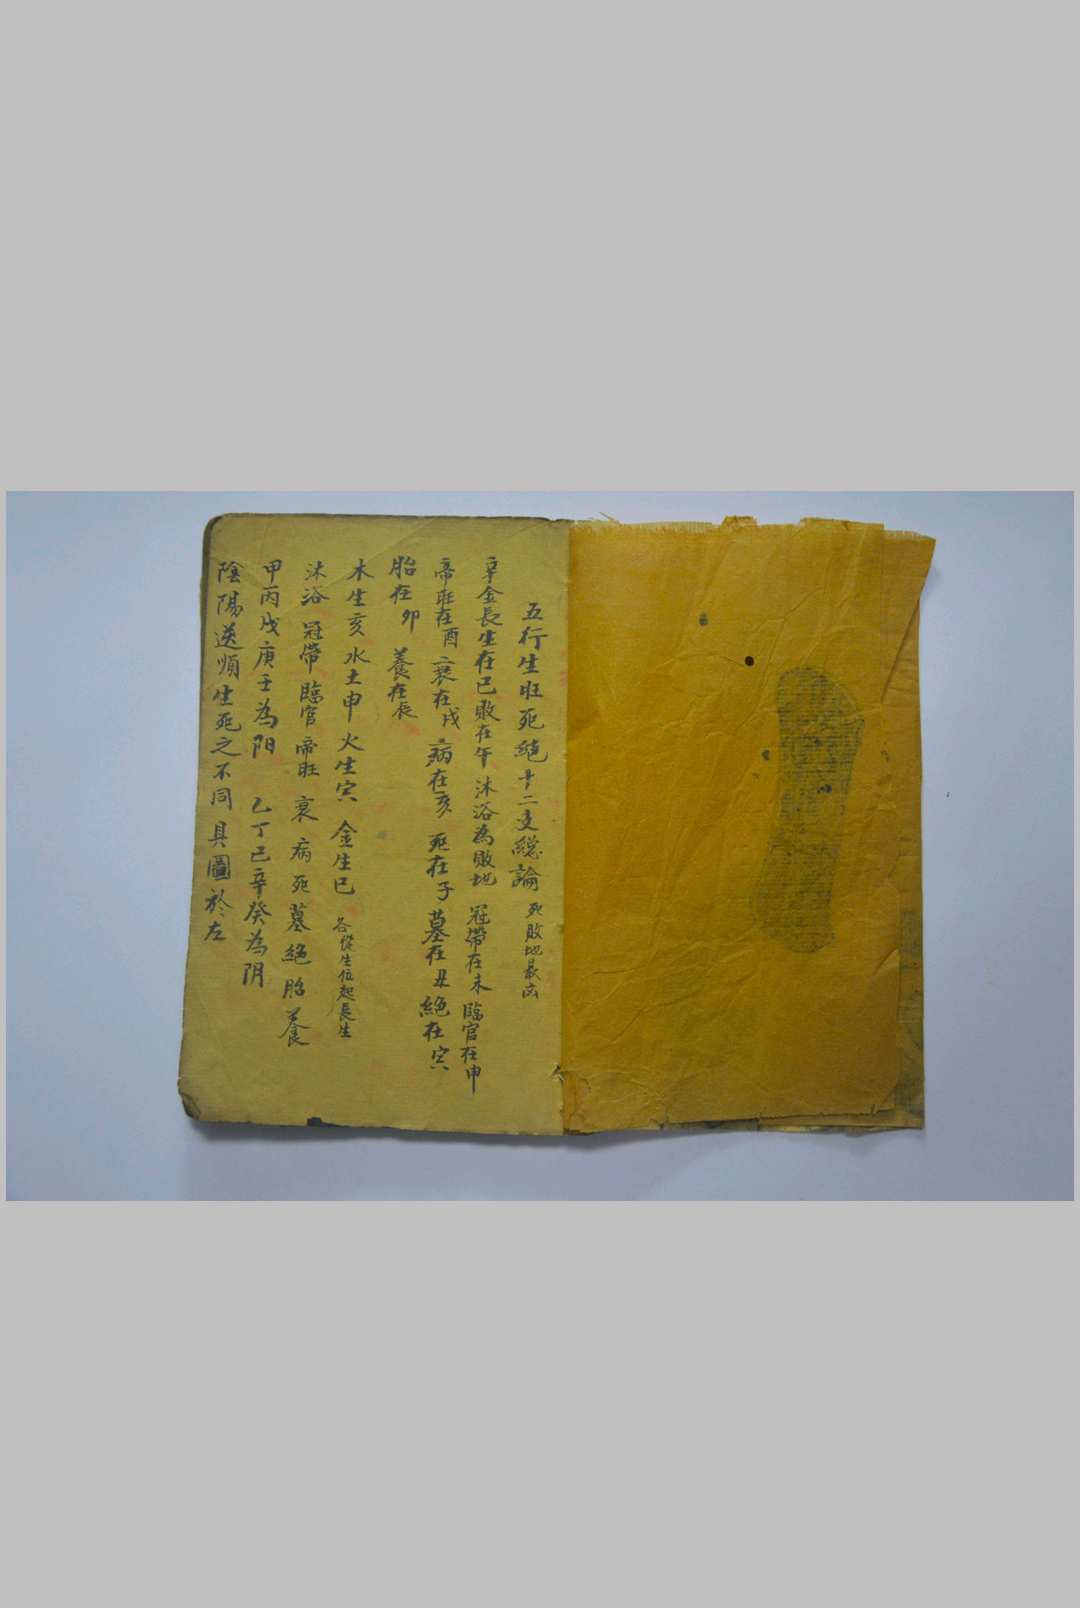 五行生旺死绝十二支総論 死敗地最凶
辛金長生在巳敗在午沐浴為敗地 冠帶在未 臨官在申
帝旺在酉 衰在戌 病在亥 死在子 墓在丑 絕在寅
胎在卯 養在辰
木生亥水土申火生寅 金生巳 各從生位起長生
沐浴 冠帶 臨官 帝旺 衰 病 死 墓 絕 胎 養
甲丙戊庚壬為阳 乙丁己辛癸為阴
陰陽逆順生死之不同具圖於左